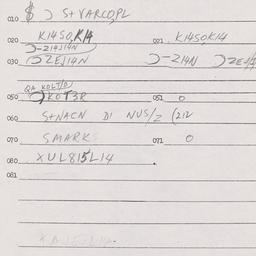 010 $ S+VARCO,PL
020 K14SO,K14 021 K14SO,K14
-Z14J14N
030 ZEJ14N -Z14N
QA KOLT/O
050 KOT3R 051 0
060 S+NACN DI NUS/Z (212
070 SMARK 071 0
080 XUL815L14
081